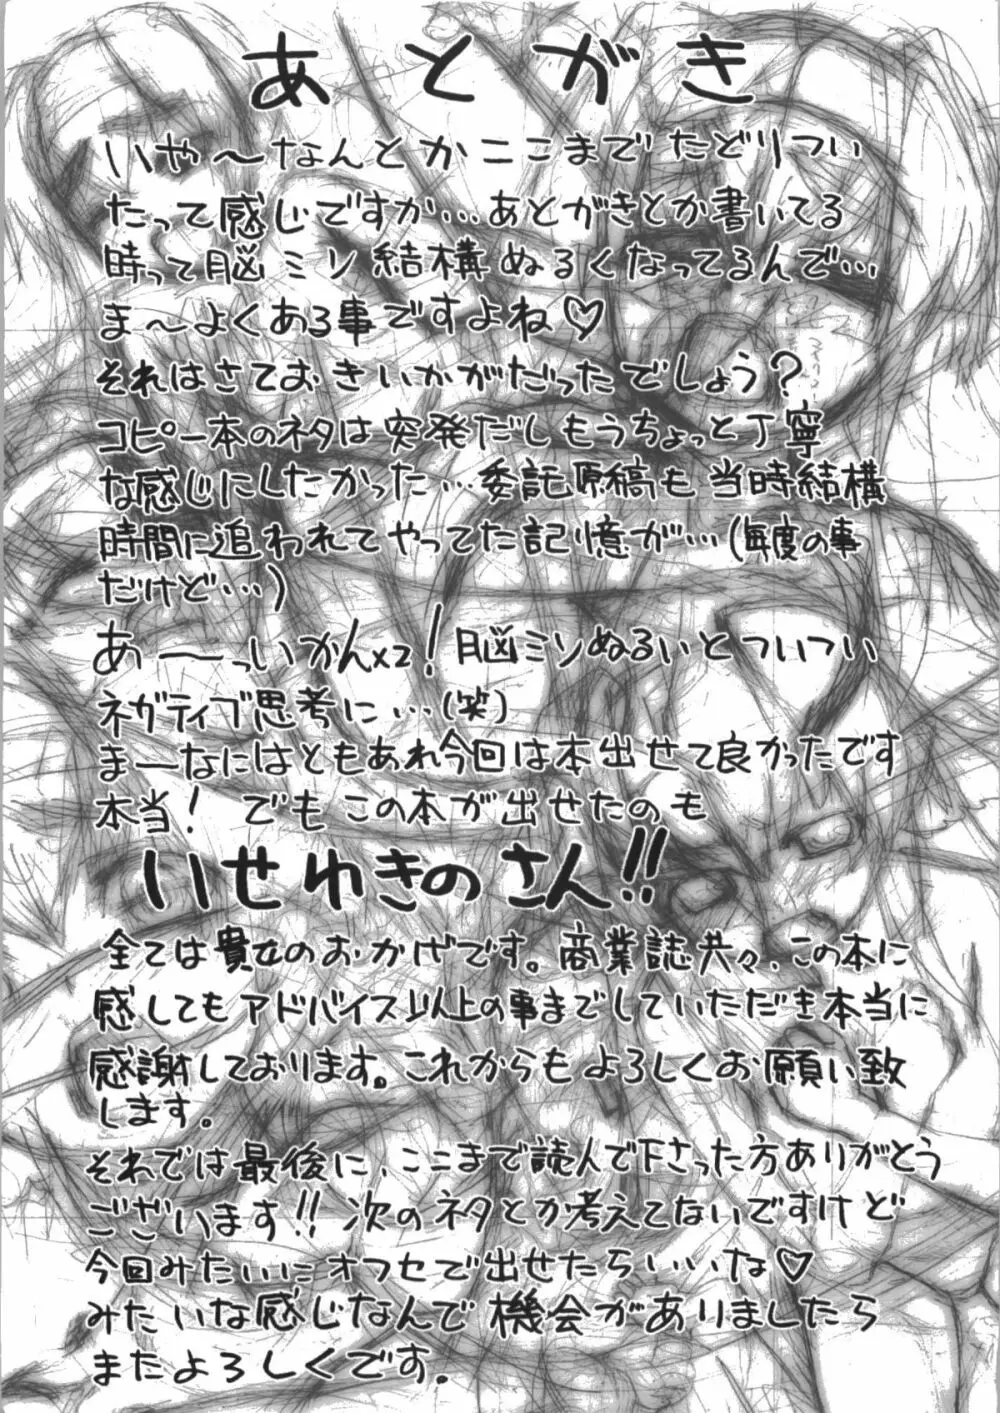 あとがき
いや〜なんとかここまでたどりつい
たって感じですか…あとがきとか書いてる
時って脳ミソ結構ぬるくなってるんで…
ま〜よくある事ですよね♡
それはさておきいかがだったでしょう?
コピー本のネタは突発だしもうちょっと丁寧
な感じにしたかった…委託原稿も当時結構
時間に追われてやってた記憶が…(毎度の事
だけど…)
あ〜っいかんx2!脳ミソぬるいとついつい
ネガティブ思考に…(笑)
まーなにはともあれ今回は本出せて良かったです
本当! でもこの本が出せたのも
いせゆきのさん!!
全ては貴女のおかげです。商業誌共々、この本に
感してもアドバイス以上の事までしていただき本当に
感謝しております。これからもよろしくお願い致
します。
それでは最後に、ここまで読んで下さった方ありがとう
ございます!!次のネタとか考えてないですけど
今回みたいにオフセで出せたらいいな♡
みたいな感じなんで機会がありましたら
またよろしくです。